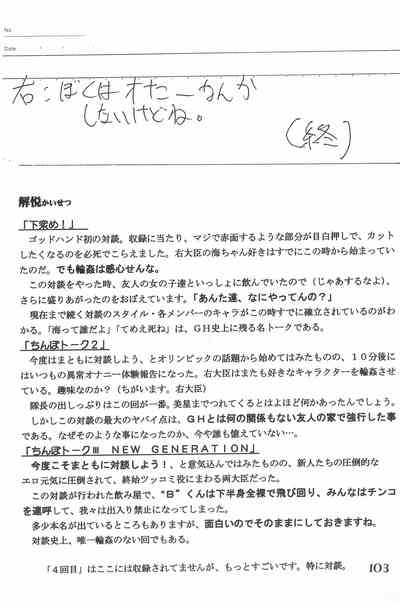 No
Date
右:ぼくはオナニーなんか
しないけどね。
(終)
解悦かいせつ
「下ネタめ!」
ゴッドハンド初の対談。収録に当たり、マジで赤面するような部分が目白押しで、カット
したくなるのを必死でこらえました。右大臣の海ちゃん好きはすでにこの時から始まってい
たのだ。でも輪姦は感心せんな。
この対談をやった時、友人の女の子達といっしょに飲んでいたので(じゃあするなよ)、
さらに盛りあがったのをおぼえています。「あんた達、なにやってんの?」
現在まで続く対談のスタイル・各メンバーのキャラがこの時すでに確立されているのがわ
かる。「海って誰だよ」「てめえ死ね」は、GH史上に残る名トークである。
「ちんぽトーク2」
今度はまともに対談しよう、とオリンピックの話題から始めてはみたものの、10分後に
はいつもの異常オナニー体験報告になった。右大臣はまたも好きなキャラクターを輪姦させ
ている。趣味なのか?(ちがいます。右大臣)
隊長の出しっぷりはこの回が一番。美星までつれてくるとはよほど何かあったんでしょう。
しかしこの対談の最大のヤバイ点は、GHとは何の関係もない友人の家で強行した事
である。なぜそのような事になったのか、今や誰も憶えていない…。
「ちんぽトークⅢ NEW GENERATION」
今度こそまともに対談しよう!、と意気込んではみたものの、新人たちの圧倒的な
エロ元気に圧倒されて、終始ツッコミ役にまわる両大臣だった。
この対談が行われた飲み屋で、"B"くんは下半身全裸で飛び回り、みんなはチンコ
を連呼して、我々は出入り禁止になってしまった。
多少本名が出ているところもありますが、面白いのでそのままにしておきますね。
対談史上、唯一輪姦のない回でもある。
「4回目」はここには収録されてませんが、もっとすごいです。特に対談。
103